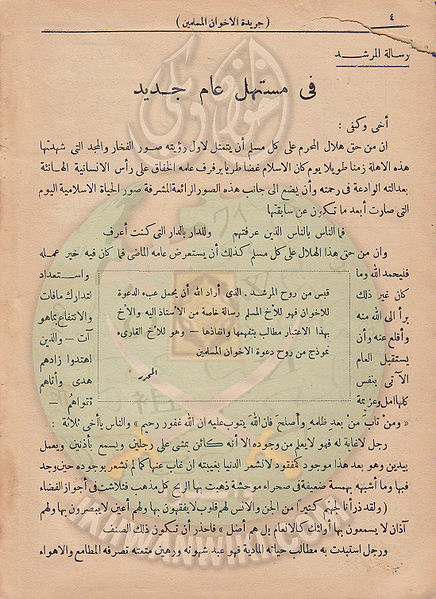 ٤
( جريدة الاخوان المسلمين )
رسالة المرشد
فى مستهل عام جديد
أخى وكفى :
ان من حق هلال المحرم على كل مسلم أن يتمثل لاول رؤيته صور الفخار والمجد التى شهدتها
هذه الاهلة زمنا طويلا يوم كان الاسلام غضا طريا يرفرف علمه الخفاق على رأس الانسانية الهانئة
بعدالته الوادعة فى رحمته وأن يضع الى جانب هذه الصور الرائعة المشرفة صور الحياة الاسلامية اليوم
التى صارت أبعد ما تكون عن سابقتها
فما الناس بالناس الذين عرفتهم وللدار بالدار التى كنت أعرف
وان من حق هذا الهلال على كل مسلم كذلك أن يستعرض عامه الماضى فما كان فيه خير عمله
فليحمد الله وما واستعداد
كان غير ذلك لتدارك مافات
برأ الى الله منه والانتفاع بماهو
وأقلع عنه وأن آت — والذين
يستقبل العام اهتدوا زادهم
الآتى بنفس هدى وآتاهم
كلها امل وعزيمة تقواهم —
قبس من روح المرشد . الذى أراد الله أن يحمل عبء الدعوة
للاخوان فهو للأخ المسلم رسالة خاصة من الأستاذ اليه والأخ
بهذا الاعتبار مطالب بتفهمها وانفاذها — وهو للأخ القارىء
نموذج من روح دعوة الاخوان المسلمين
المحرر
« ومن تاب من بعد ظلمه وأصلح فان الله يتوب عليه ان الله غفور رحيم » والناس يا أخى ثلاثة :
رجل لاغاية له فهو لايعلم من وجوده الا أنه كائن يمشى على رجلين ويسمع بأذنين ويعمل
بيدين وهو بعد هذا موجود كمفقود لاتشعر الدنيا بغيبته ان غاب عنها كما لم تشعر بوجوده حين وجد
فيها وما أشبهه بهمسة ضعيفة فى صحراء موحشة ذهبت بها الريح كل مذهب فتلاشت فى أجواز الفضاء
( ولقد ذرأنا لجهنم كثيرا من الجن والانس لهم قلوب لايفقهون بها ولهم أعين لايبصرون بها ولهم
آذان لا يسمعون بها أولئك كالانعام بل هم أضل » فاحذر أن تكون ذلك الصنف
ورجل استبدت به مطالب حياته المادية فهو عبد شهوته ورهين متعته تصرفه المطامع والاهواء